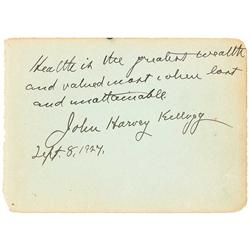 Health is the greatest wealth
and valued most when lost
and unattainable.
John Harvey Kellogg
Sept. 8, 1927.